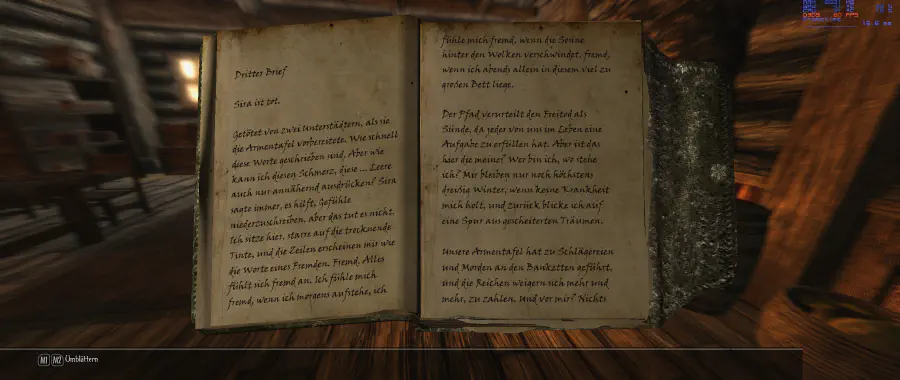 Dritter Brief
Sira ist tot.
Getötet von zwei Unterstädtern, als sie
die Armentafel vorbereitete. Wie schnell
diese Worte geschrieben sind. Aber wie
kann ich diesen Schmerz, diese ... Leere
auch nur annähernd ausdrücken? Sira
sagte immer, es hilft, Gefühle
niederzuschreiben, aber das tut es nicht.
Ich sitze hier, starre auf die trocknende
Tinte, und die Zeilen erscheinen mir wie
die Worte eines Fremden. Fremd. Alles
fühlt sich fremd an. Ich fühle mich
fremd, wenn ich morgens aufstehe, ich
fühle mich fremd, wenn die Sonne
hinter den Wolken verschwindet, fremd,
wenn ich abends allein in diesem viel zu
großen Bett liege.
Der Pfad verurteilt den Freitod als
Sünde, da jeder von uns im Leben eine
Aufgabe zu erfüllen hat. Aber ist das
hier die meine? Wer bin ich, wo stehe
ich? Mir bleiben nur noch höchstens
dreißig Winter, wenn keine Krankheit
mich holt, und zurück blicke ich auf
eine Spur aus gescheiterten Träumen.
Unsere Armentafel hat zu Schlägereien
und Morden an den Banketten geführt,
und die Reichen weigern sich mehr und
mehr, zu zahlen. Und vor mir? Nichts
M1 M2 Umblättern